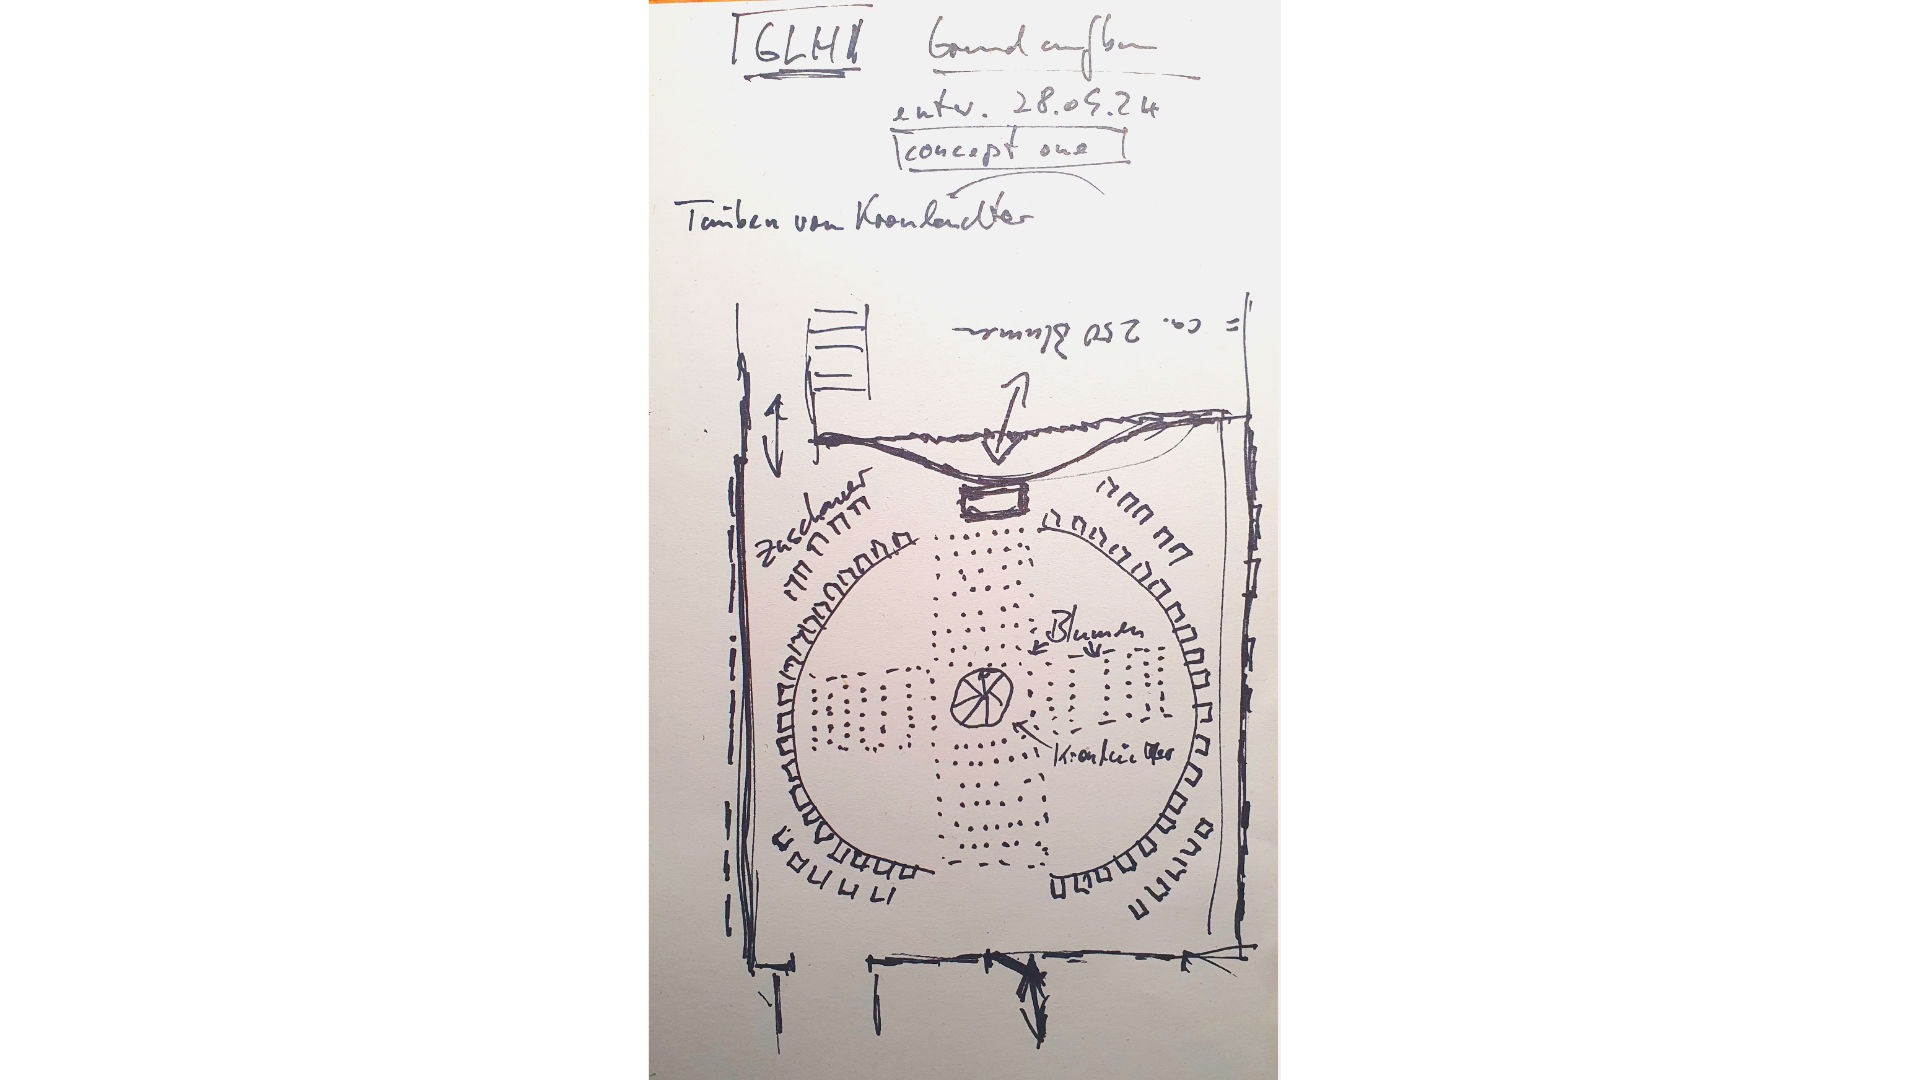 GLH
Grundaufbau
entw. 28.05.24
concept one
Tauben vom Kronleuchter
= ca. 250 Blumen
Zuschauer
Blumen
Kronleuchter